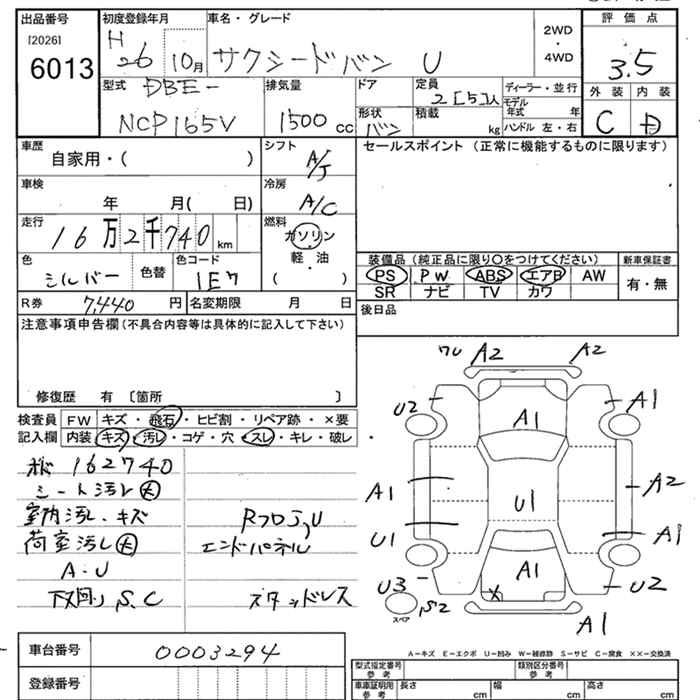 出品番号
[2026]
6013
初度登録年月
H 26 10月
車名・グレード
サクシードバン U
2WD
・
4WD
評価点
3.5
外装 内装
C D
型式
DBE-
NCP165V
排気量
1500 cc
ドア
形状
バン
定員
2[5]人
積載
kg
ディーラー・並行
モデル年式 年
ハンドル 左・右
車歴
自家用・( )
シフト
A/T
車検
年 月( 日)
冷房
A/C
走行
16万2千740 km
燃料
ガソリン
・
軽油
・
( )
色
シルバー
色替
色コード
1E7
R券 7,440 円
名変期限 月 日
セールスポイント (正常に機能するものに限ります)
装備品 (純正品に限り〇をつけてください)
新車保証書
PS PW ABS エアB AW
SR ナビ TV カワ
有・無
後日品
注意事項申告欄(不具合内容等は具体的に記入して下さい)
修復歴 有 〔箇所 〕
検査員
記入欄
FW キズ・飛石・ヒビ割・リペア跡・×要
内装 キズ・汚レ・コゲ・穴・スレ・キレ・破レ
162740
シート汚レ大
室内汚レ・キズ
荷室汚レ大
A・U
下回り S.C
RフロアU
エンドパネル
スタッドレス
ワレ A2 A2
U2 A1 A1
A1 U1 A2
U1 A1
A1
U3 U2
スペア
S2
A1
A-キズ E-エクボ U-凹み W-補修跡 S-サビ C-腐食 XX-交換済
車台番号 0003294
登録番号
型式指定番号
参考
類別区分番号
参考
車車証明用
参考
長さ cm
幅 cm
高さ cm